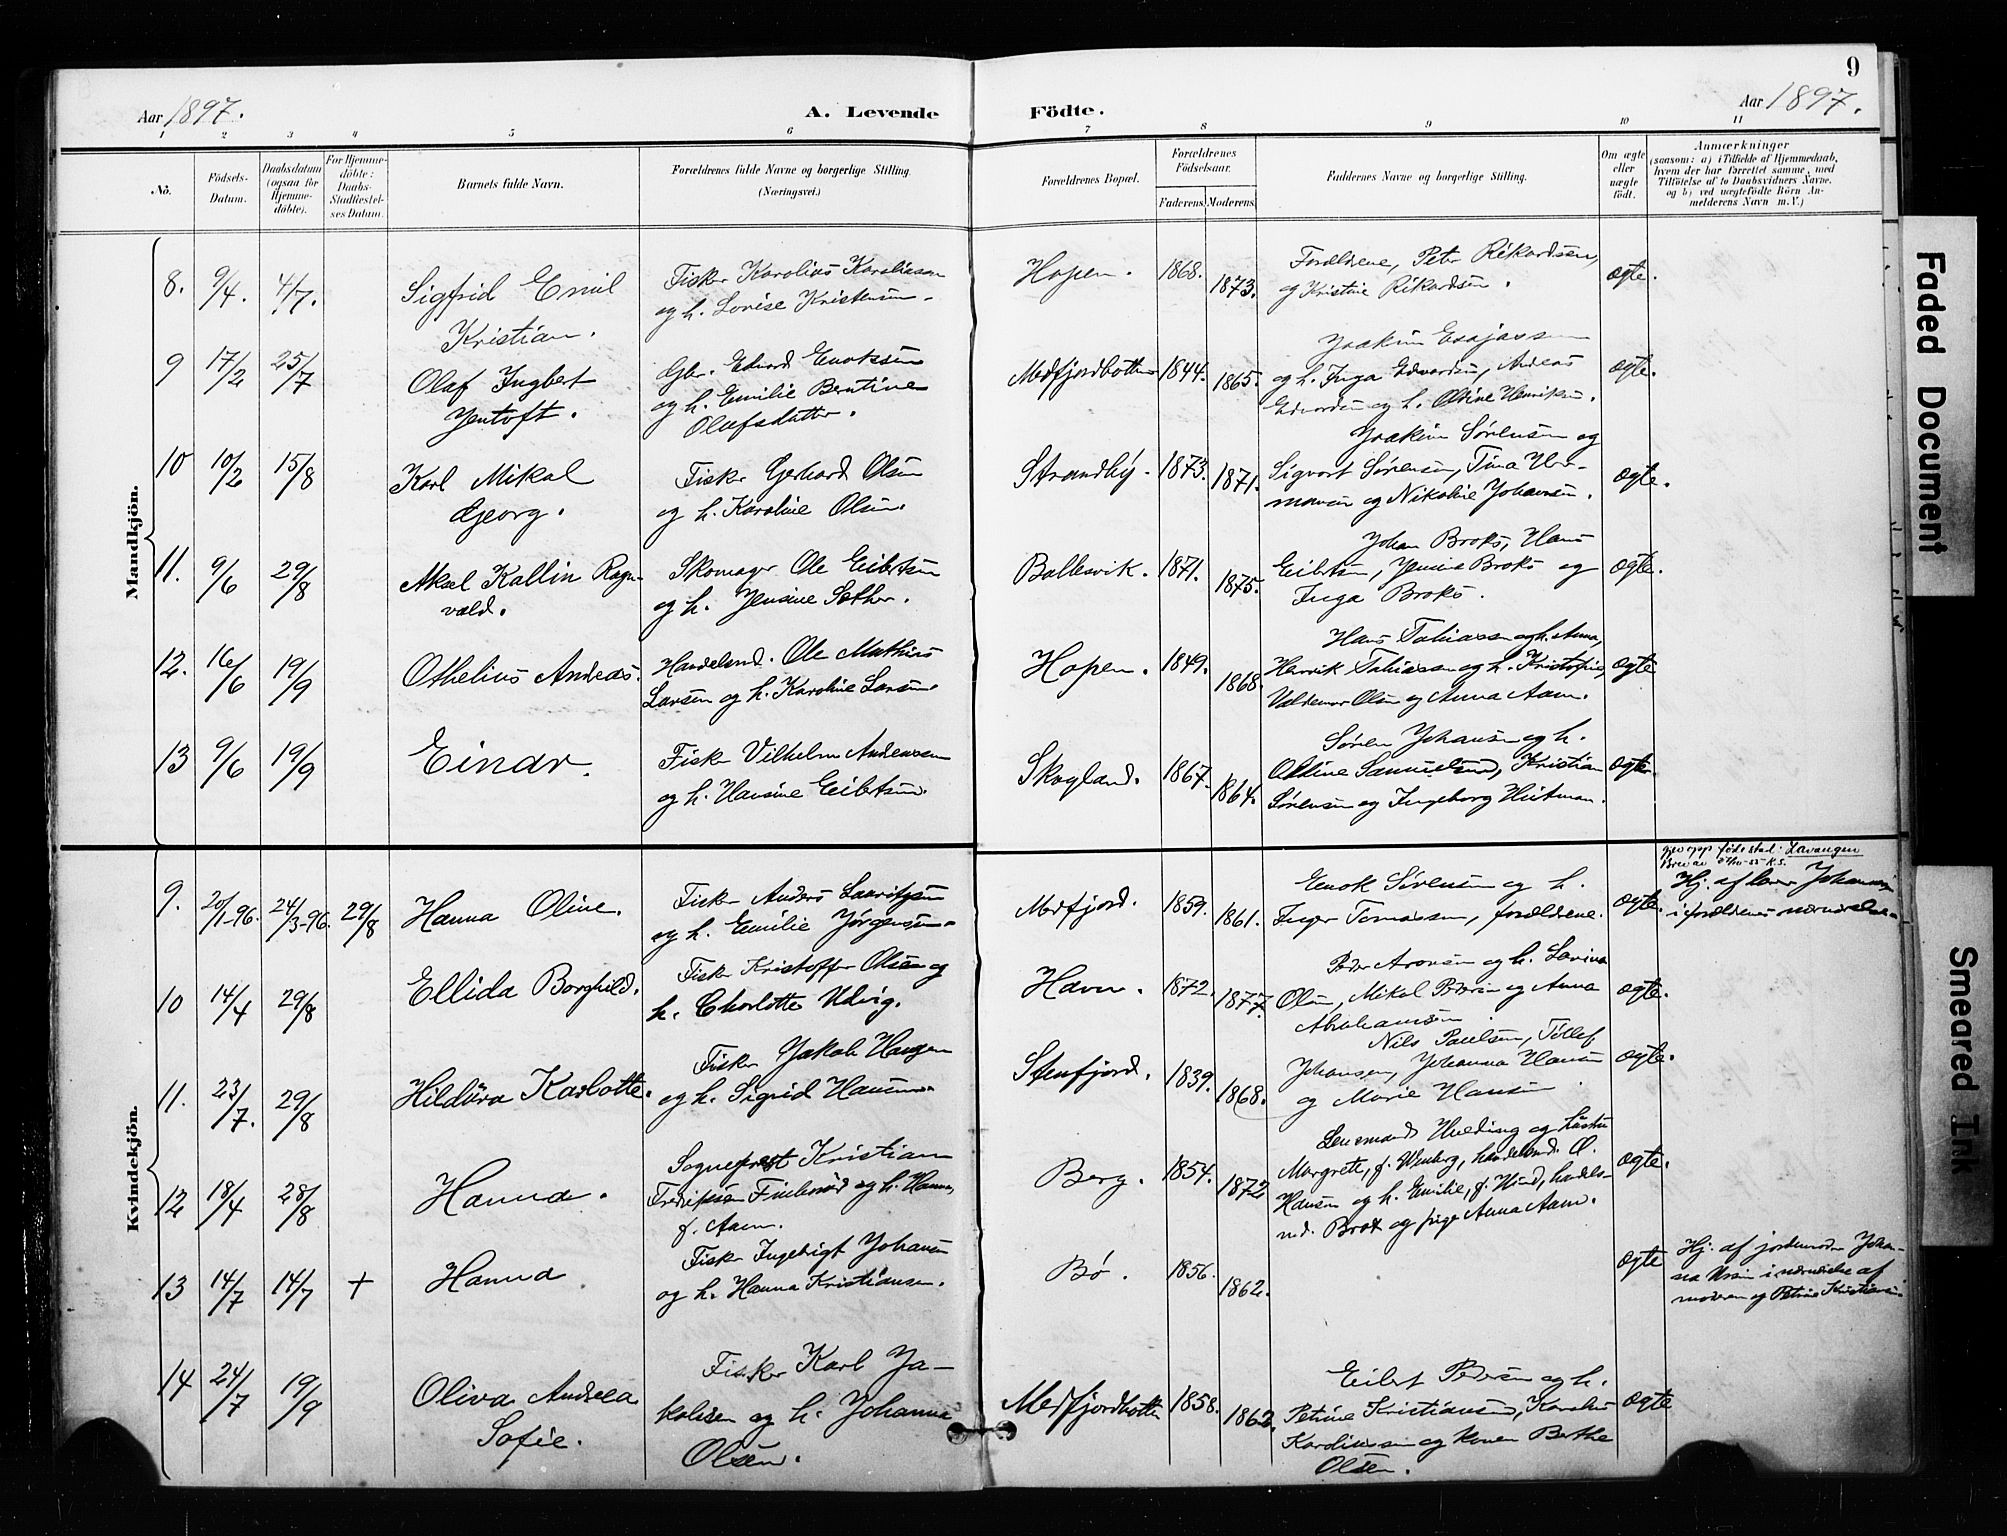 9
Aar 1897.
A. Levende
Födte.
Aar 1897.
1 2 3 4 5 6 7 8 9 10 11
No.
Födsels-
Datum.
Daabsdatum
(ogsaa for
Hjemme-
döbte).
For Hjemme-
döbte:
Daabs-
Stadfæstel-
ses Datum.
Barnets fulde Navn.
Forældrenes fulde Navne og borgerlige Stilling.
(Næringsvei.)
Forældrenes Bopæl.
Forældrenes
Födselsaar.
Faderens.
Moderens.
Faddernes Navne og borgerlige Stilling.
Om ægte
eller
uægte
födt.
Anmærkninger
(saasom: a) i Tilfælde af Hjemmedaab,
hvem der har forrettet samme, med
Tilföielse af to Daabsvidners Navne,
og b) ved uægtefödte Börn An-
melderens Navn m. V.)
Mandkjön.
8. 9/4. 4/7.
Sigfrid Emil
Kristian.
Fisker Karolius Karoliussen
og h. Lovise Kristensen.
Hopen. 1868. 1873.
Forældrene, Petr Rikardsen,
og Kristine Rikardsen.
ægte.
9 17/2 25/7
Olaf Ingbert
Jentoft.
Gbr. Edvard Enoksen
og h. Emilie Bentine
Olafsdatter.
Medfjordbotten 1844. 1865.
Joakim Esajassen
og h. Inga Edvardsen, Andreas
Edvardsen og h. Oldine Henriksen.
ægte.
10 10/2 15/8
Karl Mikal
Georg.
Fisker Gerhard Olsen
og h. Karoline Olsen.
Strandby. 1873. 1871.
Joakim Sørensen og
Sigvart Sørensen, Tina Her-
mansen og Nikoline Johansen.
ægte.
11. 9/6 29/8
Aksel Kallin Ragn-
vald.
Skomager Ole Eibertsen
og h. Jensine Sæther.
Ballesvik. 1871. 1875.
Johan Broks, Hans
Eilertsen, Jensine Broks og
Inga Broks.
ægte.
12. 16/6 19/9
Othelius Andreas.
Handelsmd. Ole Mathias
Larsen og h. Karoline Larsen.
Hopen. 1849. 1868.
Hans Tobiassen og h. Anna,
Henrik Tobiassen og h. Kristofine,
Valdemar Olsen og Anna Aam.
ægte
13 9/6 19/9
Einar.
Fisker Vilhelm Andreassen
og h. Hansine Eilertsen.
Skogland. 1867. 1864.
Søren Johansen og h.
Oldine Samuelsen, Kristian
Sørensen og Ingeborg Hutman.
ægte.
Kvindekjön.
9. 20/1-96. 24/3-96. 29/8
Hanna Oline.
Fisker Anders Lauritzen
og h. Emilie Jørgensen.
Medfjord. 1859. 1861.
Enok Sørensen og h.
Inger Tomassen, forældrene.
ægte.
fødestad: Lavangen
Hj. af lærer Johansen
i forældrenes nærværelse.
10 14/4 29/8
Ellida Borghild.
Fisker Kristoffer Olsen og
h. Charlotte Udvig.
Havn. 1872. 1877.
Peder Aronsen og h. Lovina
Olsen, Mikal Pedersen og Anna
Abrahamsen
ægte.
11. 23/7. 29/8
Hildūra Karlotte.
Fisker Jakob Hansen
og h. Sigrid Hansen.
Stenfjord. 1839. 1868.
Nils Paulsen, Tollef
Johansen, Johanna Hansen
og Marie Hansen
ægte.
12 18/4 28/8
Hanna.
Sogneprest Kristian
Fredriksen og h. Hanna,
f. Aam.
Berg. 1854. 1872
Lensmand Hulding og hustru
Margrete, f. Wenberg, handelsmd. O.
Hansen og h. Emilie, f. Hund, handels-
md. Brox og pige Anna Aam.
ægte.
13 14/7 14/7 +
Hanna.
Fisker Ingebrigt Johansen
og h. Hanna Kristiansen.
Bø. 1856. 1862.
ægte
Hj. af jordemoder Johan-
na i nærværelse af
moderen og Petrine Kristiansen
14 24/7 19/9
Oliva Andrea
Sofie.
Fisker Karl Ja-
kobsen og h. Johanna
Olsen.
Medfjordbotten 1858. 1862.
Eilert Pedersen og h.
Petrine Kristiansen, Karolius
Karoliussen og konen Berthe
Olsen.
ægte
Faded Document
Smeared Ink